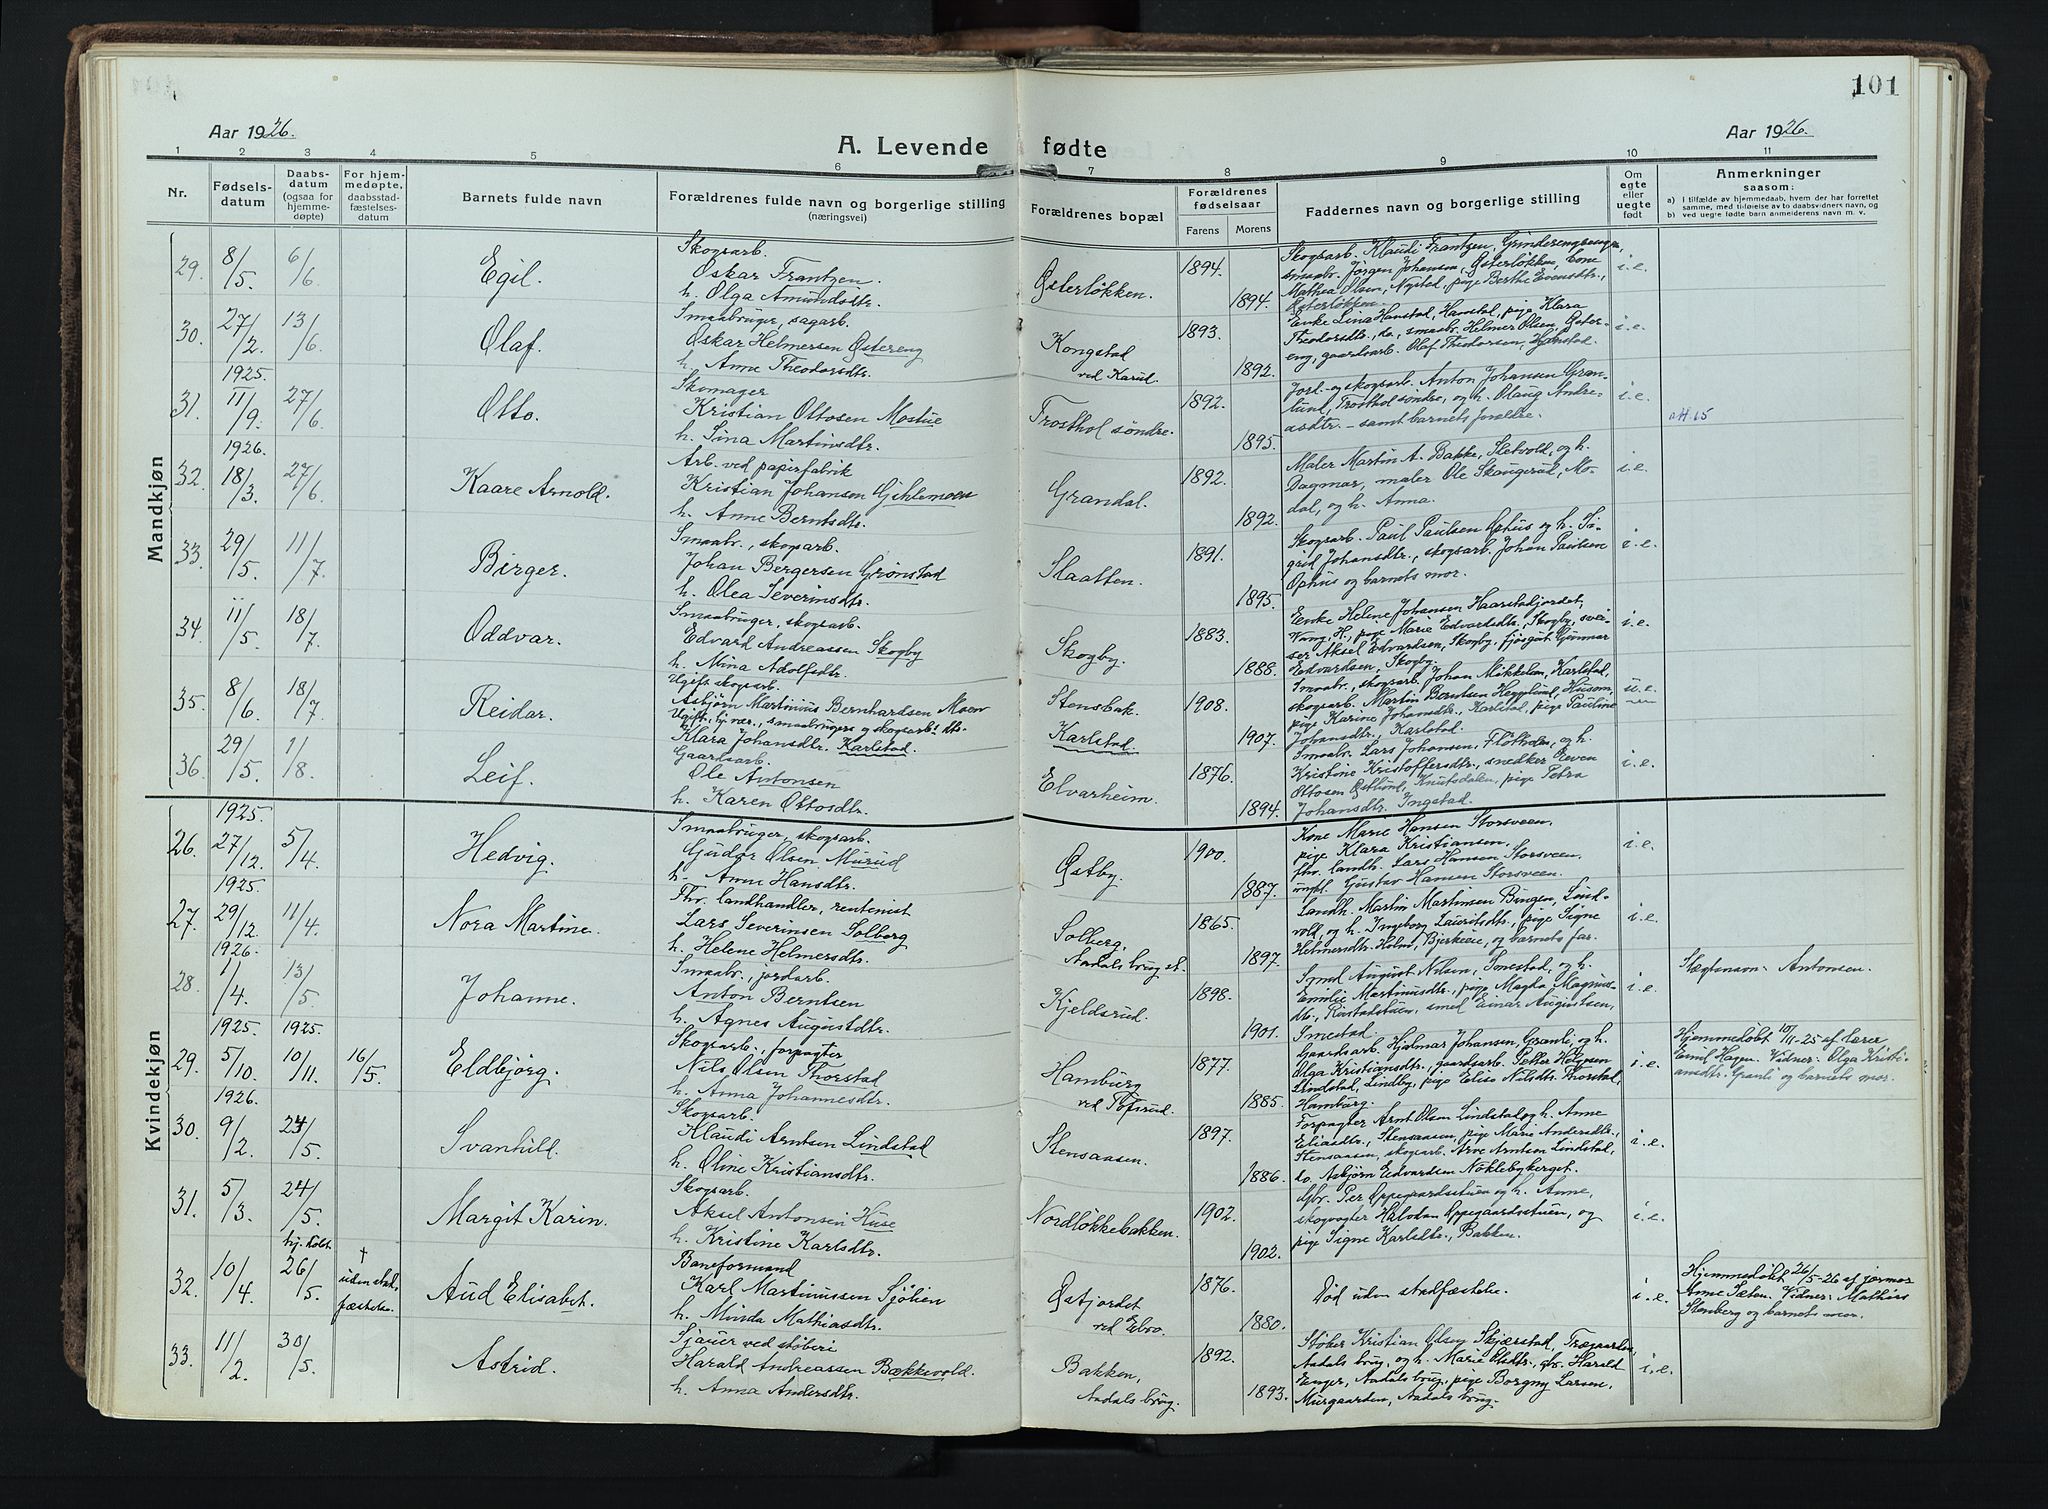 101
Aar 1926.
A. Levende fødte
Aar 1926.
1 2 3 4 5 6 7 8 9 10 11
Nr.
Fødsels-
datum
Daabs-
datum
(ogsaa for
hjemme-
døpte)
For hjem-
medøpte,
daabsstad-
fæstelses-
datum
Barnets fulde navn
Forældrenes fulde navn og borgerlige stilling
(næringsvei)
Forældrenes bopæl
Forældrenes
fødselsaar
Farens Morens
Faddernes navn og borgerlige stilling
Om
egte
eller
uegte
født
Anmerkninger
saasom:
a) I tilfælde av hjemmedaab, hvem der har forrettet
samme, med tilføielse av to daabsvidners navn, og
b) ved uegte fødte barn anmelderens navn m. v.
Mandkjøn
29. 8/5 6/6 Egil.
Skogsarb.
Oskar Frantzen.
h. Olga Amundsdtr.
Østerløkken. 1894. 1894.
Skogsarb. Klaudi Frantzen, Grinderengsengen,
smaabr. Jørgen Johansen, Østerløkken, kone
Mathea Olsen, Nystad, pige Berthe Evensdtr.,
Østerløkken.
i. e.
30. 27/2. 13/6 Olaf.
Smaabruger, sagarb.
Oskar Helmersen Østereng
h. Anne Theodorsdtr.
Kongstad
ved Karud. 1893. 1892.
Enke Lina Hanstad, Hanstad, pige Klara
Theodorsdtr., do., smaabr. Helmer Olsen, Øster-
eng, gaardsarb. Olaf Theodorsen, Hanstad.
i. e.
1925.
31. 11/9. 27/6 Otto.
Skomager
Kristian Ottosen Mostue
h. Lina Martinsdtr.
Trosthol søndre. 1892. 1895.
Jord- og skogsarb. Anton Johansen Gran-
lund, Trosthol søndre, og h. Olaug Andre-
asdtr. – samt barnets foreldre.
i. e.
att. 65
1926.
32. 18/3. 27/6 Kaare Arnold.
Arb. ved papirfabrik
Kristian Johansen Gjihlemoen
h. Anne Berntsdtr.
Grandal. 1892. 1892.
Maler Martin A. Bakke, Sletvold, og h.
Dagmar, maler Ole Skaugerud, Mo-
dal, og h. Anna.
i. e.
33. 29/5. 11/7 Birger.
Smaabr., skogsarb.
Johan Bergersen Grønstad
h. Olea Severinsdtr.
Slaatten. 1891. 1895.
Skogsarb. Paul Paulsen Ophus og h. Si-
grid Johansdtr., skogsarb. Johan Paulsen
Ophus og barnets mor.
i. e.
34. 11/5. 18/7. Oddvar.
Smaabruger, skogsarb.
Edvard Andreassen Skogby
h. Mina Adolfsdtr.
Skogby. 1883. 1888.
Enke Helene Johansen Haarstadjordet,
Vang, H., pige Marie Edvardsdtr., Skogby, svei-
ser Aksel Edvardsen, Skogby, fjøsgut Gunnar
Edvardsen, Skogby.
i. e.
35. 8/6. 18/7. Reidar.
Ugift skogsarb.
Asbjørn Martinius Bernhardsen Moen
Ugift, hj. vær., smaabrugers og skogsarb.' dtr.
Klara Johansdtr. Karlstad.
Stensbak.
Karlstad. 1908. 1907.
Smaabr., skogsarb. Johan Mikkelsen, Karlstad,
skogsarb. Martin Berntsen Hegglund, Husom,
pige Karine Johansdtr., Karlstad, pige Pauline
Johansdtr., Karlstad.
u. e.
36. 29/5. 1/8. Leif.
Gaardsarb.
Ole Antonsen
h. Karen Ottosdtr.
Elvarheim. 1876. 1894.
Smaabr. Lars Johansen, Fløtholen, og h.
Kristine Kristoffersdtr., snedker Even
Ottosen Østlund, Knutsdalen, pige Petra
Johansdtr. Ingstad.
i. e.
Kvindekjøn
1925.
26. 27/12. 5/4 Hedvig.
Smaabruger, skogsarb.
Gudor Olsen Murud
h. Anne Hansdtr.
Østby. 1900. 1887.
Kone Marie Hansen Storsveen,
pige Klara Kristiansen,
fhv. landh. Lars Hansen Storsveen,
ungkl. Gustav Hansen Storsveen.
i. e.
1925.
27. 29/12. 11/4. Nora Martine.
Fhv. landhandler, rentenist
Lars Severinsen Solberg
h. Helene Helmersdtr.
Solberg,
Aadals brug st. 1865. 1897.
Landh. Martin Martinsen Bingen, Lind-
vold, og h. Ingeborg Lauritsdtr., pige Signe
Helmersdtr. Holm, Bjerkeeie, og barnets far.
i. e.
1926.
28. 1/4. 13/5. Johanne.
Smaabr., jordarb.
Anton Berntsen
h. Agnes Augustdtr.
Kjeldsrud. 1898. 1901.
Smed August Nilsen, Imestad, og h.
Emilie Martinusdtr., pige Magda Magnus-
dtr., Rustadstuen, smed Einar Augustsen,
Imestad.
i. e.
Slegtsnavn: Antonsen.
1925. 1925.
29. 5/10. 10/11. 16/5. Eldbjørg.
Skogsarb., forpagter
Nils Olsen Thorstad
h. Anna Johannesdtr.
Hamburg
ved Tofsrud. 1877. 1885.
Gaardsarb. Hjalmar Johansen, Granli, og h.
Olga Kristiansdtr., gaardsarb. Petter Helgesen
Lindstad, Lindby, pige Elise Nilsdtr. Thorstad,
Hamburg.
i. e.
Hjemmedøbt 10/11-25 af lærer
Emil Hagen. Vidner: Olga Kristi-
ansdtr. Granli og barnets mor.
1926.
30. 9/2 24/5. Svanhild.
Skogsarb.
Klaudi Arntsen Lindstad
h. Oline Kristiansdtr.
Stensaasen. 1897. 1886.
Forpagter Arnt Olsen Lindstad og h. Anne
Eliasdtr., Stensaasen, pige Marie Andersdtr.,
Stensaasen, skogsarb. Arve Arntsen Lindstad,
do. Asbjørn Edvardsen Nøklebyberget.
i. e.
31. 5/3. 24/5. Margit Karin.
Skogsarb.
Aksel Antonsen Huse
h. Kristine Karlsdtr.
Nordløkkebakken. 1902. 1902.
Gbr. Per Oppegaardsstuen og h. Anne,
skogvogter Halvdan Oppegaardsstuen, og
pige Signe Karlsdtr., Bakken.
i. e.
hj. døbt
32. 10/4. 26/5. † uden stad-
fæstelse. Aud Elisabet.
Baneformand
Karl Martinussen Sjølien
h. Minda Mathiasdtr.
Østjordet
ved Ebro. 1876. 1880.
Død uden stadfæstelse.
i. e.
Hjemmedøbt 26/5-26 af jormor
Anne Sæten. Vidner: Mathias
Stenberg og barnets mor.
33. 11/2. 30/5. Astrid.
Sjauer ved støberi
Harald Andreassen Bækkevold.
h. Anna Andersdtr.
Bakken,
Aadals brug. 1892. 1893.
Støker Kristian Olsen Skjærstad, Trægaarden,
Aadals brug, og h. Marie Olsdtr., gbr. Harald
Enger, Aadals brug, pige Borgny Larsen,
Murgaarden, Aadals brug.
i. e.